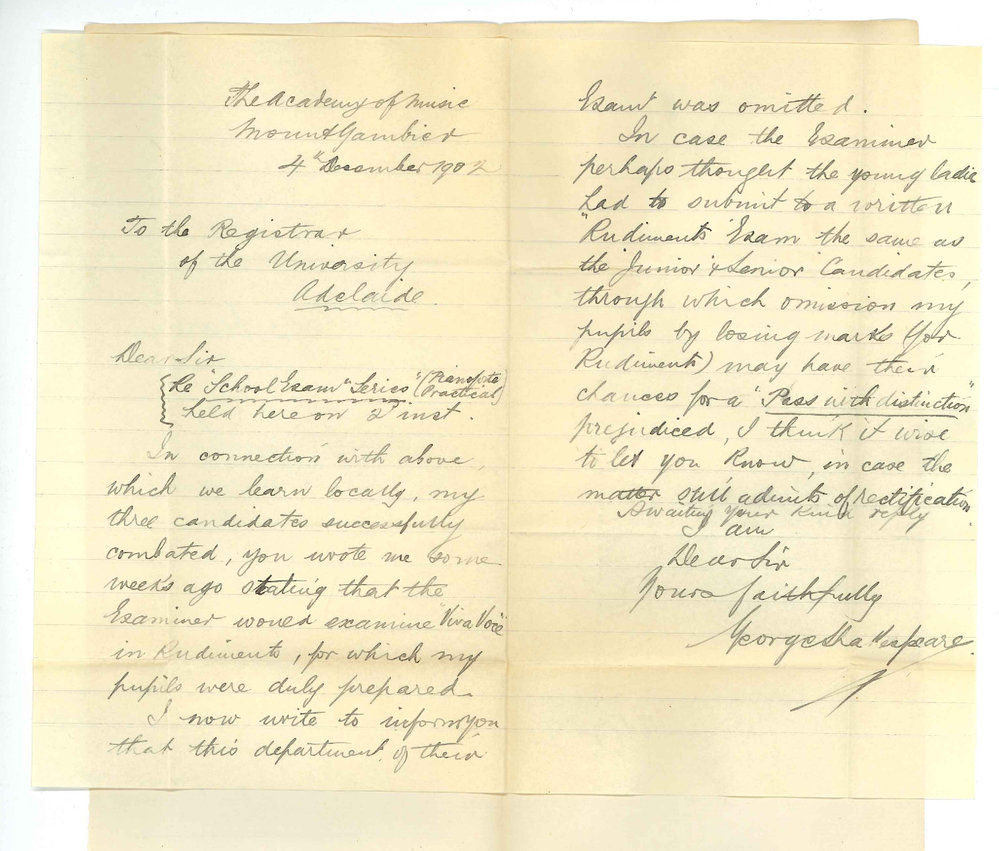 The Academy of Music
Mount Gambier
4th December 1902
To the Registrar
of the University
Adelaide.
Dear Sir
Re "School Exam" Series" (Pianoforte Practical)
held here on 2nd inst.
In connection with above,
which we learn locally, my
three candidates successfully
combated, you wrote me some
weeks ago stating that the
Examiner would examine "Viva Voce"
in Rudiments, for which my
pupils were duly prepared.
I now write to inform you
that this department of their
Exam was omitted.
In case the Examiner
perhaps thought the young ladie
had to submit to a written
"Rudiments" Exam the same as
the "Junior & Senior" Candidates,
through which omission my
pupils by losing marks (for
Rudiments) may have their
chances for a "Pass with distinction"
prejudiced, I think it wise
to let you know, in case the
matter still admits of rectification.
Awaiting your kind reply
I am
Dear Sir
Yours faithfully
George Shakespeare.